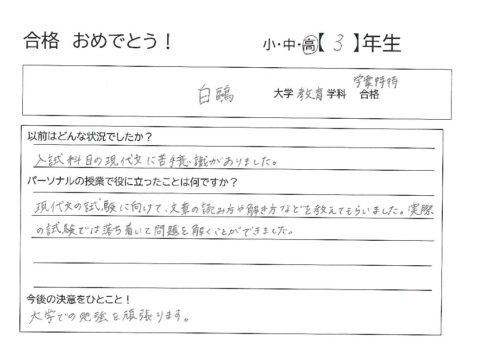 合格 おめでとう！
小・中・高【 3 】年生
学業特待
白鷗 大学 教育 学科 合格
以前はどんな状況でしたか？
入試科目の現代文に苦手意識がありました。
パーソナルの授業で役に立ったことは何ですか？
現代文の試験に向けて、文章の読み方や解き方などを教えてもらいました。実際
の試験では落ち着いて問題を解くことができました。
今後の決意をひとこと！
大学での勉強を頑張ります。